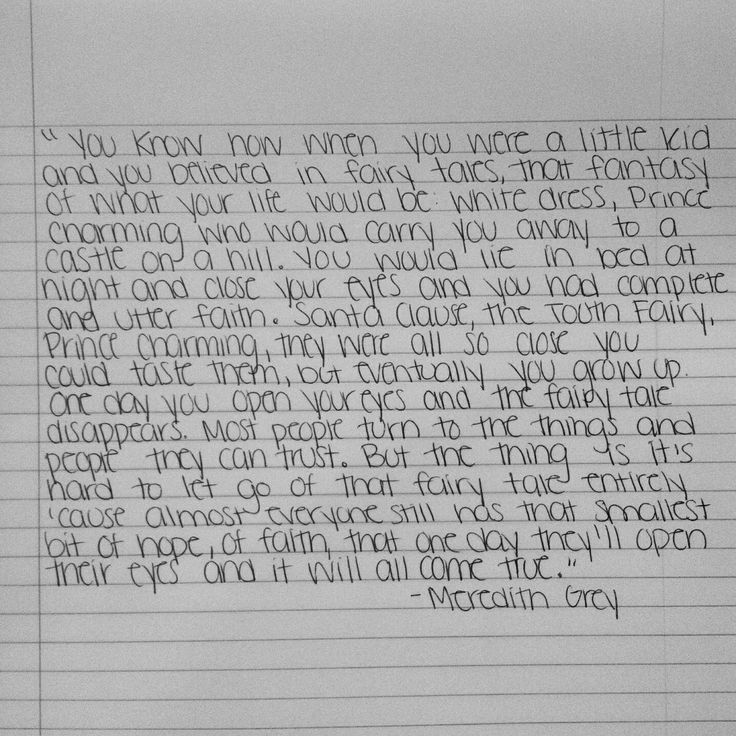 "You know how when you were a little kid
and you believed in fairy tales, that fantasy
of what your life would be: white dress, Prince
charming who would carry you away to a
castle on a hill. You would lie in bed at
night and close your eyes and you had complete
and utter faith. Santa Clause, the Tooth Fairy,
Prince Charming, they were all so close you
could taste them, but eventually you grow up.
One day you open your eyes and the fairy tale
disappears. Most people turn to the things and
people they can trust. But the thing is it's
hard to let go of that fairy tale entirely
'cause almost everyone still has that smallest
bit of hope, of faith, that one day they'll open
their eyes and it will all come true."
-Meredith Grey